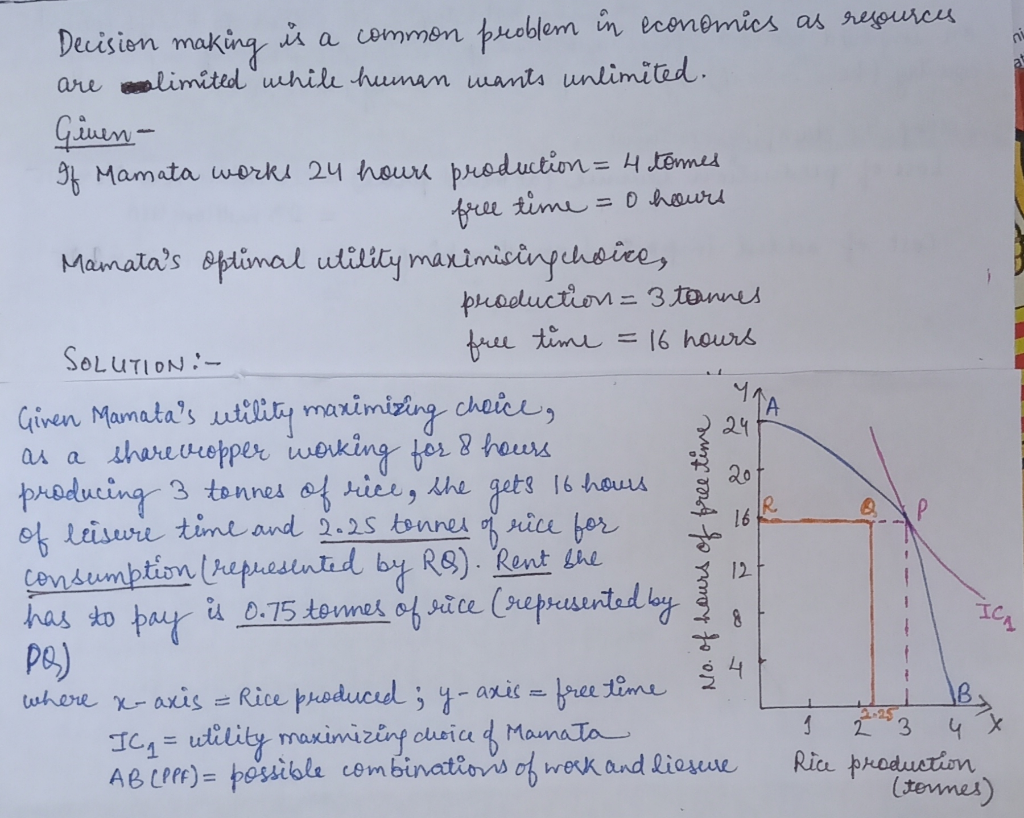 Decision making is a common problem in economics as resources
are limited while human wants unlimited.
Given -
If Mamata works 24 hours production = 4 tonnes
free time = 0 hours
Mamata's optimal utility maximising choice,
production = 3 tonnes
free time = 16 hours
SOLUTION :-
Given Mamata's utility maximizing choice,
as a sharecropper working for 8 hours
producing 3 tonnes of rice, she gets 16 hours
of leisure time and 2.25 tonnes of rice for
consumption (represented by RQ). Rent she
has to pay is 0.75 tonnes of rice (represented by
PQ)
where x-axis = Rice produced ; y-axis = free time
IC1 = utility maximizing choice of Mamata
AB (PPF) = possible combinations of work and liesure
Y
A
24
20
R
Q
P
16
12
8
4
IC1
B
1
2
2.25
3
4
X
No. of hours of free time
Rice production
(tonnes)